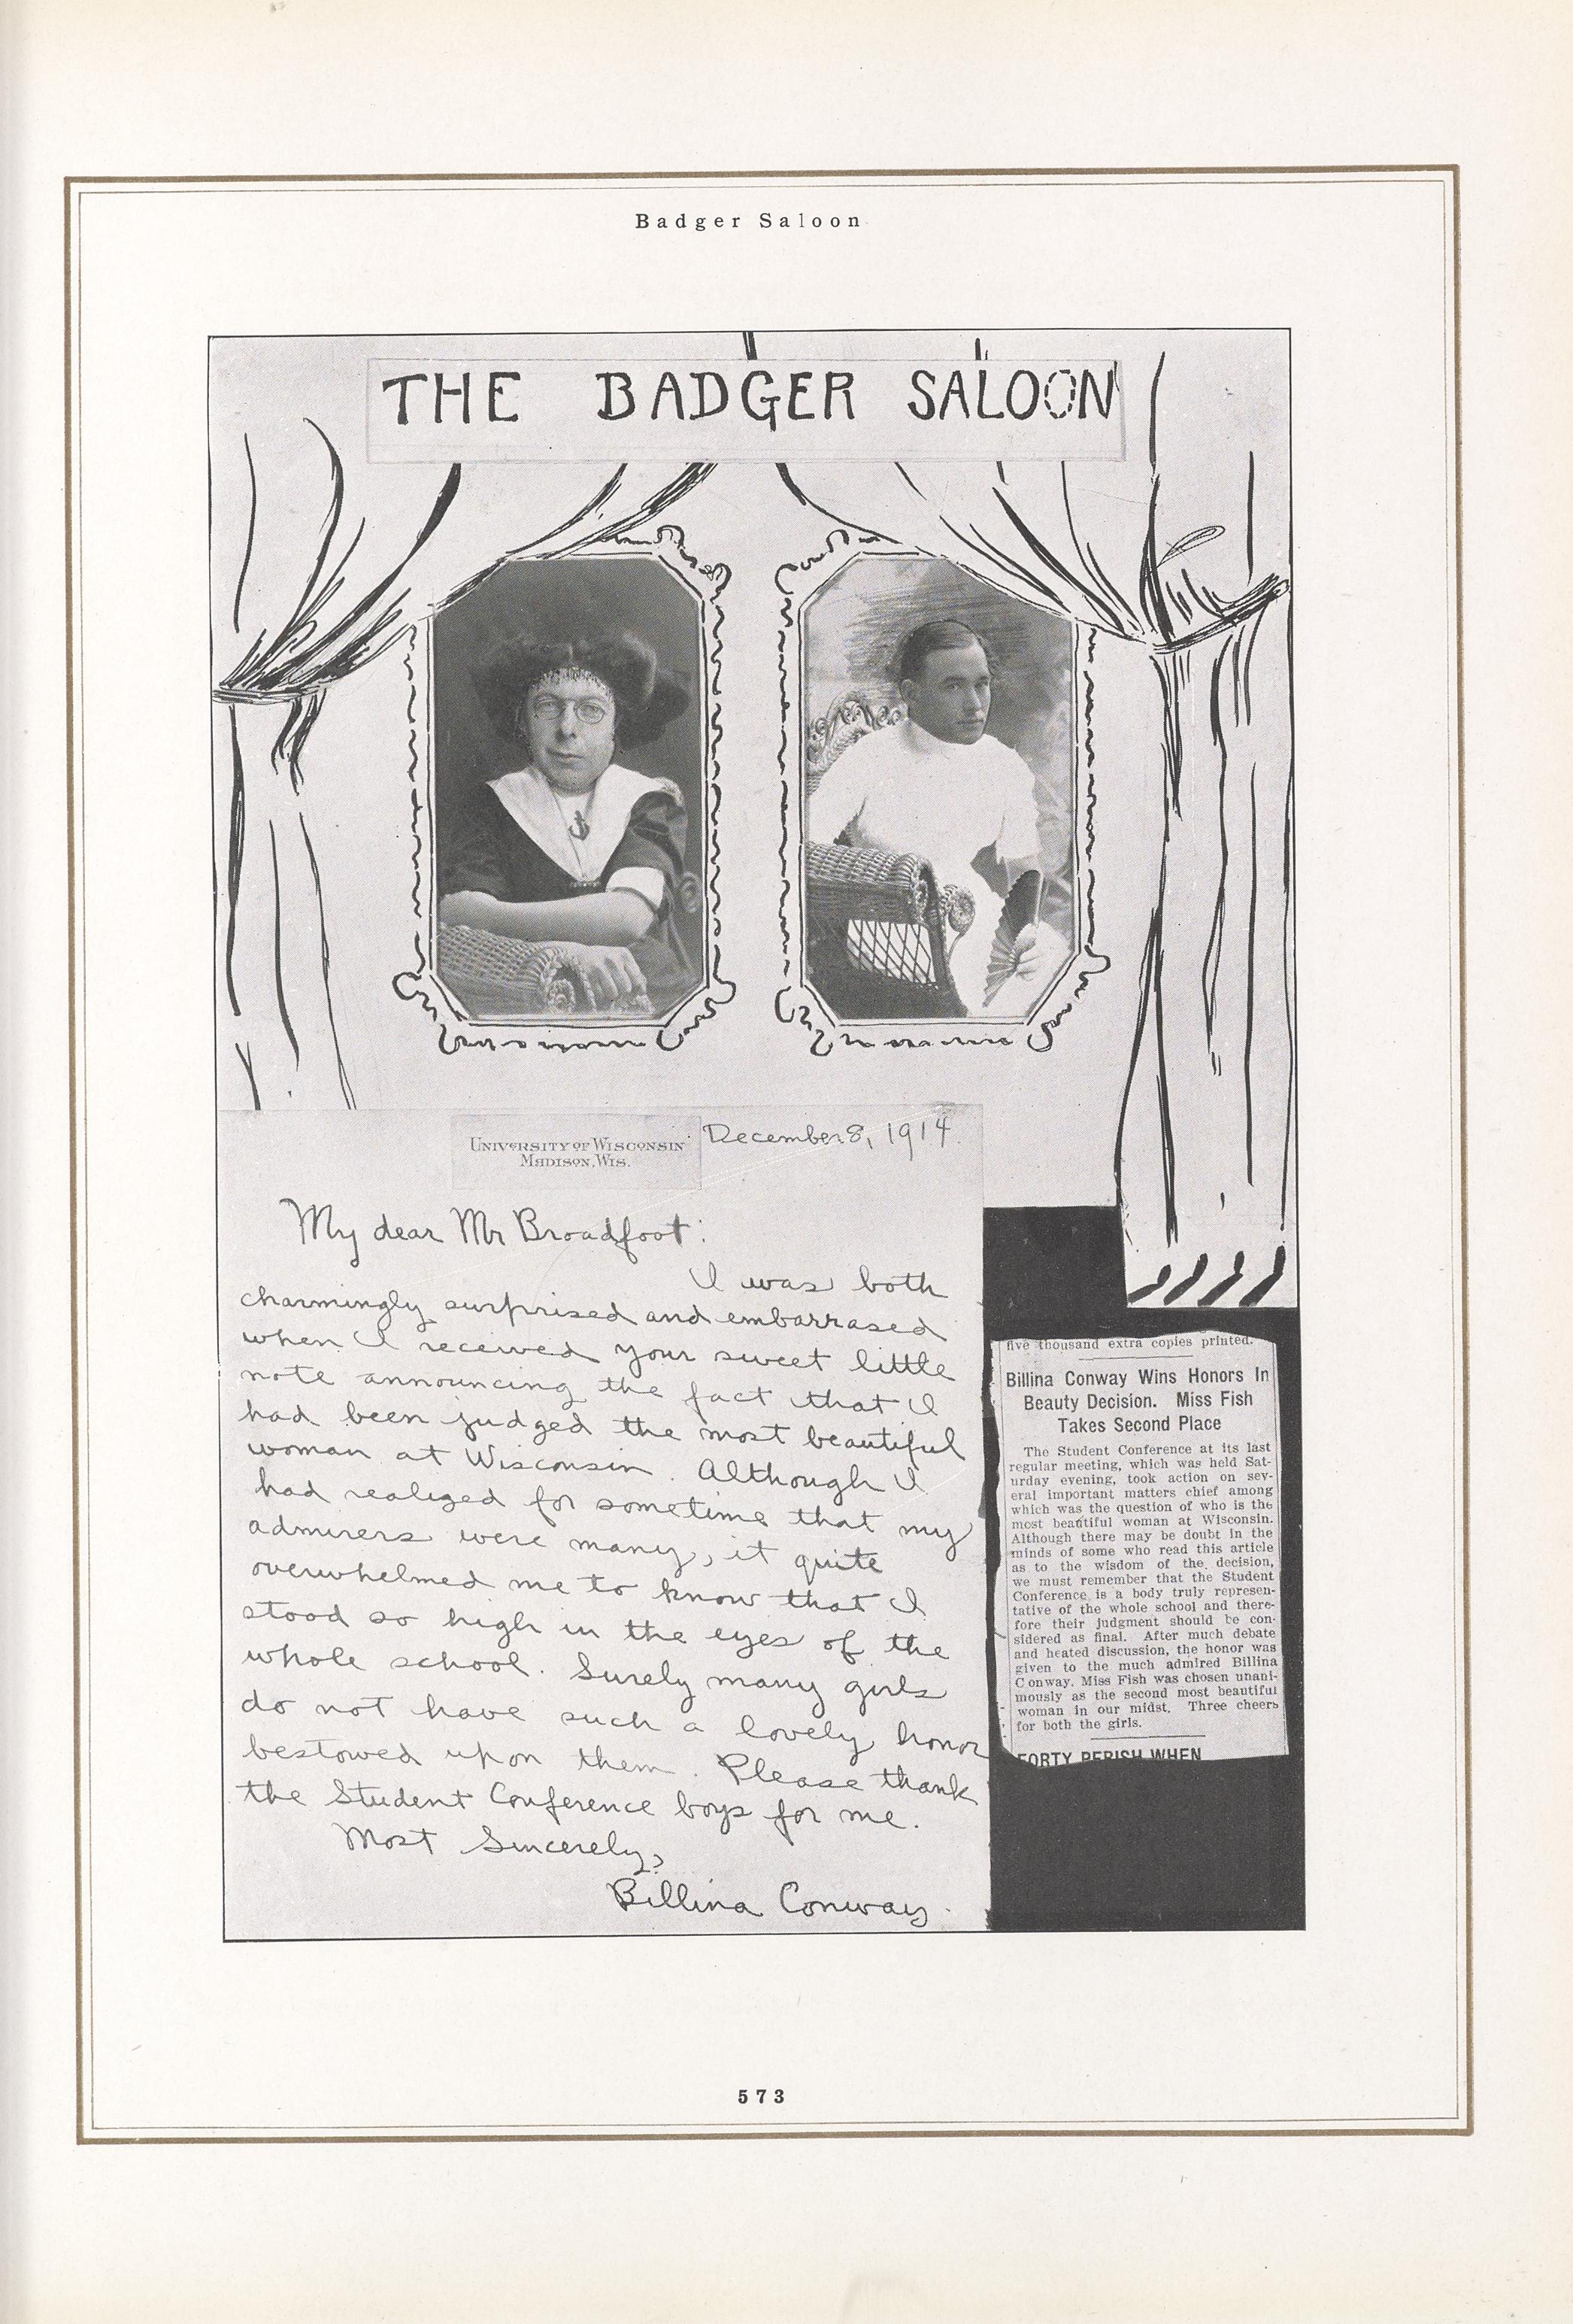 Badger Saloon
THE BADGER SALOON
UNIVERSITY OF WISCONSIN
MADISON, WIS.
December 8, 1914.
My dear Mr Broadfoot:
I was both
charmingly surprised and embarrased
when I received your sweet little
note announcing the fact that I
had been judged the most beautiful
woman at Wisconsin. Although I
had realized for sometime that my
admirers were many, it quite
overwhelmed me to know that I
stood so high in the eyes of the
whole school. Surely many girls
do not have such a lovely honor
bestowed upon them. Please thank
the Student Conference boys for me.
Most Sincerely,
Billina Conway.
five thousand extra copies printed.
Billina Conway Wins Honors In
Beauty Decision. Miss Fish
Takes Second Place
The Student Conference at its last
regular meeting, which was held Sat-
urday evening, took action on sev-
eral important matters chief among
which was the question of who is the
most beautiful woman at Wisconsin.
Although there may be doubt in the
minds of some who read this article
as to the wisdom of the decision,
we must remember that the Student
Conference is a body truly represen-
tative of the whole school and there-
fore their judgment should be con-
sidered as final. After much debate
and heated discussion, the honor was
given to the much admired Billina
Conway. Miss Fish was chosen unani-
mously as the second most beautiful
woman in our midst. Three cheers
for both the girls.
FORTY PERISH WHEN
573